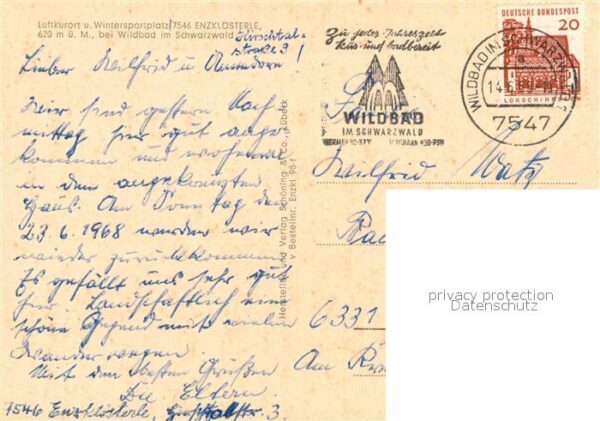 Luftkurort u. Wintersportplatz 7546 ENZKLÖSTERLE,
620 m ü. M., bei Wildbad im Schwarzwald
Hirschtal-
straße 3
Lieber Wilfried u. Annedore!
Wir sind gestern Nach-
mittag hier gut ange-
kommen und wohnen
in dem angekreuzten
Haus. Am Sonntag den
23.6.1968 werden wir
wieder zurückkommen.
Es gefällt uns sehr gut
hier. Landschaftlich eine
schöne Gegend mit vielen
Wanderwegen.
Mit den besten Grüßen
Die Eltern.
7546 Enzklösterle, Hirschtalstr. 3.
Hersteller und Verlag Schöning & Co., Lübeck
Bestellnr. Enzkl 98-1
Zu jeder Jahreszeit
kur- und badbereit
WILDBAD
IM SCHWARZWALD
DEUTSCHE BUNDESPOST
20
LORSCH/HESSEN
WILDBAD IM SCHWARZW
a
14.6.
7547
Wilfried Watz
6331
Am
privacy protection
Datenschutz